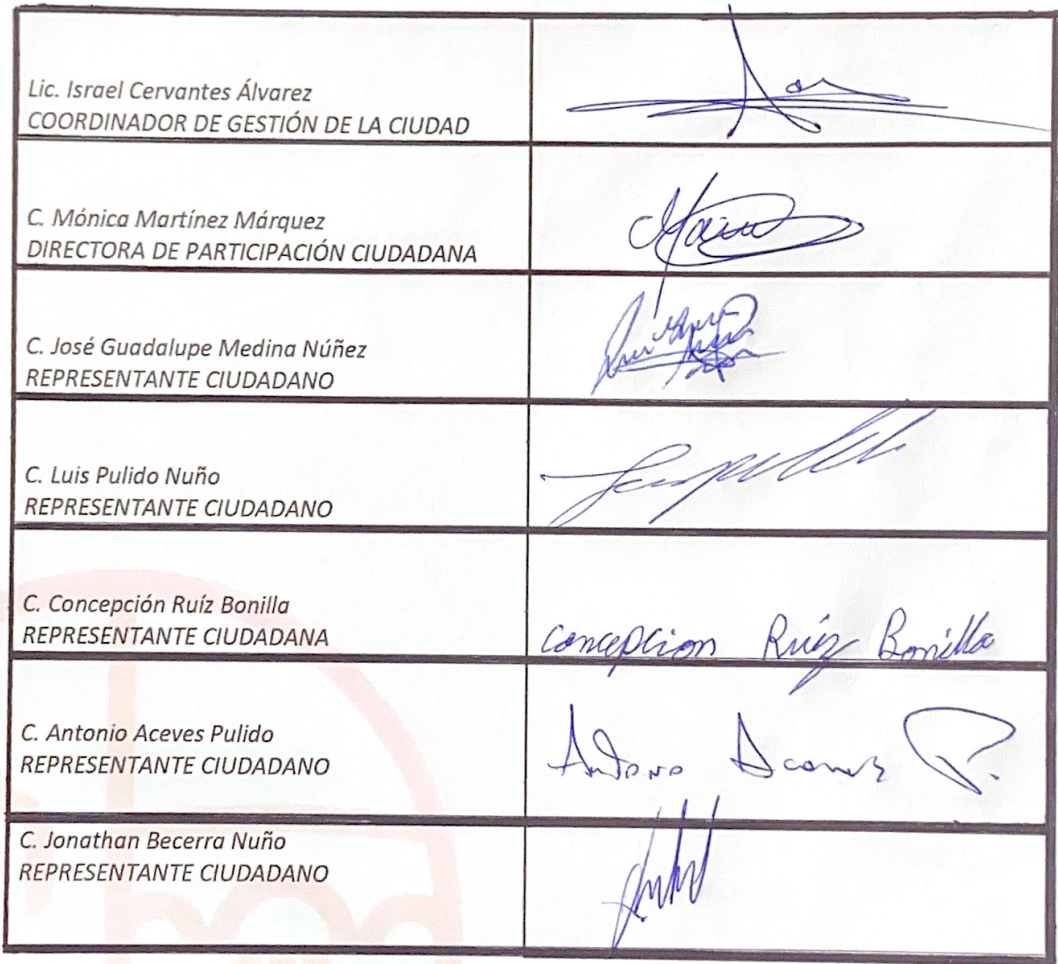 Lic. Israel Cervantes Álvarez
COORDINADOR DE GESTIÓN DE LA CIUDAD
C. Mónica Martínez Márquez
DIRECTORA DE PARTICIPACIÓN CIUDADANA
C. José Guadalupe Medina Núñez
REPRESENTANTE CIUDADANO
C. Luis Pulido Nuño
REPRESENTANTE CIUDADANO
C. Concepción Ruíz Bonilla
REPRESENTANTE CIUDADANA
Concepcion Ruiz Bonilla
C. Antonio Aceves Pulido
REPRESENTANTE CIUDADANO
Antonio Aceves P.
C. Jonathan Becerra Nuño
REPRESENTANTE CIUDADANO